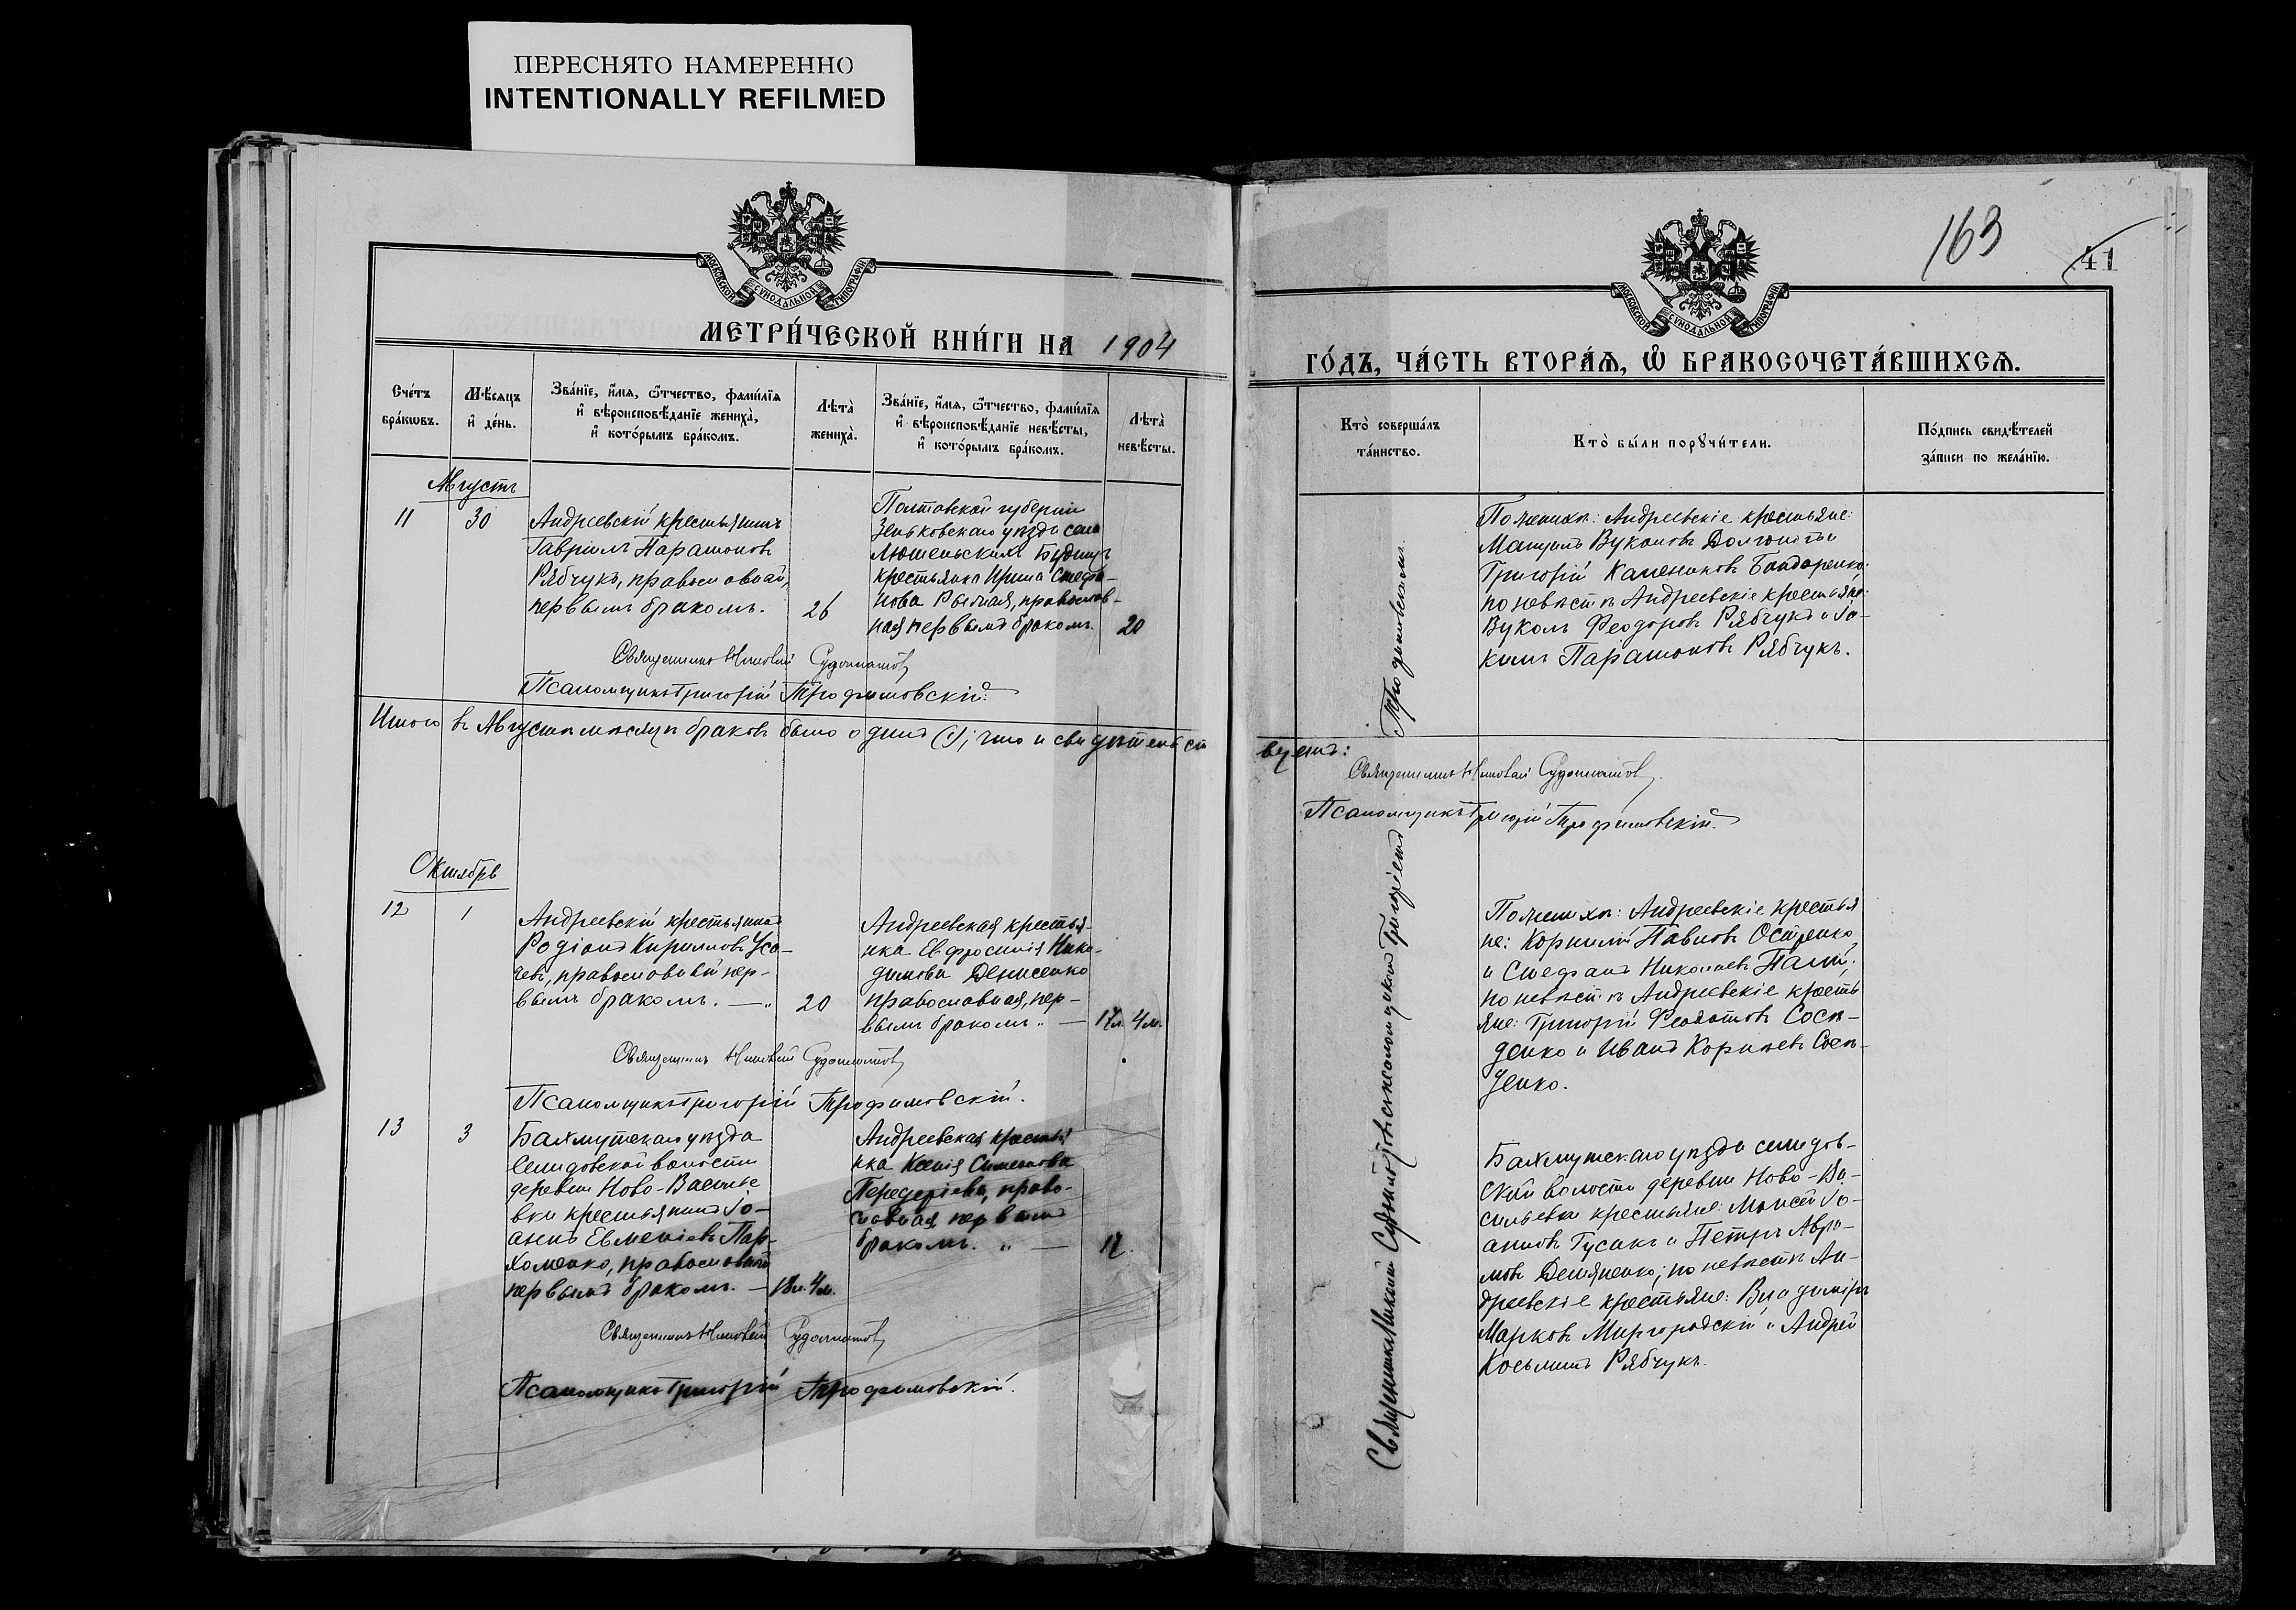 ПЕРЕСНЯТО НАМЕРЕННО
INTENTIONALLY REFILMED
МОСКОВСКОЙ СѴНОДАЛЬНОЙ ТИПОГРАФІИ
МЕТРИ́ЧЕСКОЙ КНИ́ГИ НА 1904
Сче́тъ
бра́ковъ.
Мѣ́сяцъ
и де́нь.
Зва́нїе, и҆́мѧ, ѻ҆́тчество, фами́лїѧ
и҆ вѣроисповѣ́данїе жениха̀,
и҆ кото́рымъ бра́комъ.
Лѣта̀
жениха̀.
Зва́нїе, и҆́мѧ, ѻ҆́тчество, фами́лїѧ
и҆ вѣроисповѣ́данїе невѣ́сты,
и҆ кото́рымъ бра́комъ.
Лѣта̀
невѣ́сты.
Августъ
11
30
Андреевскій крестьянинъ
Гавріилъ Парамоновъ
Рябчукъ, православный,
первымъ бракомъ.
26
Полтавской губерніи
Зеньковскаго уѣзда села
Лютенскихъ Будищъ
крестьянка Ирина Стефа-
нова, православ-
ная первымъ бракомъ.
20
Священникъ Судоплатов
Псаломщикъ Григорій Трофимовскій.
Итого въ Августѣ мѣсяцѣ браковъ было одинъ (1); что и свидѣтельст
Октябрь
12
1
Андреевскій крестьянинъ
Родіонъ Кирилловъ Уса-
чевъ, православный пер-
вымъ бракомъ. —„
20
Андреевская крестья-
нка Евфросинія Нико-
димова Денисенко
православная, пер-
вымъ бракомъ „ —
17л. 4м.
Священникъ Судоплатов
Псаломщикъ Григорій Трофимовскій.
13
3
Бахмутскаго уѣзда
Селидовской волости
деревни Ново-Василье
вки крестьянинъ Іо-
аннъ Евменіевъ Пар-
хоменко, православный
первымъ бракомъ. —
18л. 4м.
Андреевская крестья
нка Ксенія Симеонова
Передеріева, право-
славная первымъ
бракомъ. „ —
17.
Священникъ Судоплатов
Псаломщикъ Григорій Трофимовскій.
163
41
МОСКОВСКОЙ СѴНОДАЛЬНОЙ ТИПОГРАФІИ
ГО́ДЪ, ЧА́СТЬ ВТОРА́Ѧ, Ѽ БРАКОСОЧЕТА́ВШИХСѦ.
Кто̀ соверша́лъ
та́инство.
Кто̀ бы́ли порꙋчи́тели.
По́дпись свидѣ́телей
за́писи по жела́нїю.
По женихѣ: Андреевскіе крестьяне:
Вуколовъ и
Григорій Бондаренко:
по невѣстѣ Андреевскіе крестьяне:
Вуколъ Феодоровъ Рябчукъ и Іа-
кимъ Парамоновъ Рябчукъ.
вуемъ:
Священникъ Судоплатов.
Псаломщикъ Григорій Трофимовскій.
По женихѣ: Андреевскіе крестья
не: Корнилій Павловъ Остренко
и Стефанъ Николаевъ Палій;
по невѣстѣ Андреевскіе кресть
яне: Григорій Феодотовъ Сосѣ-
денко и Иванъ Корніевъ Сосѣ-
денко.
Бахмутскаго уѣзда селидов-
ской волости деревни Ново-Ва-
сильевки крестьяне: Моисей Іо-
анновъ Гусакъ и Петръ Авра-
мовъ Демяненко; по невѣстѣ Ан-
дреевскіе крестьяне: Владиміръ
Марковъ Миргородскій и Андрей
Косьминъ Рябчукъ.
Священникъ Судоплатовъ съ псаломщикомъ Григоріемъ Трофимовскимъ.